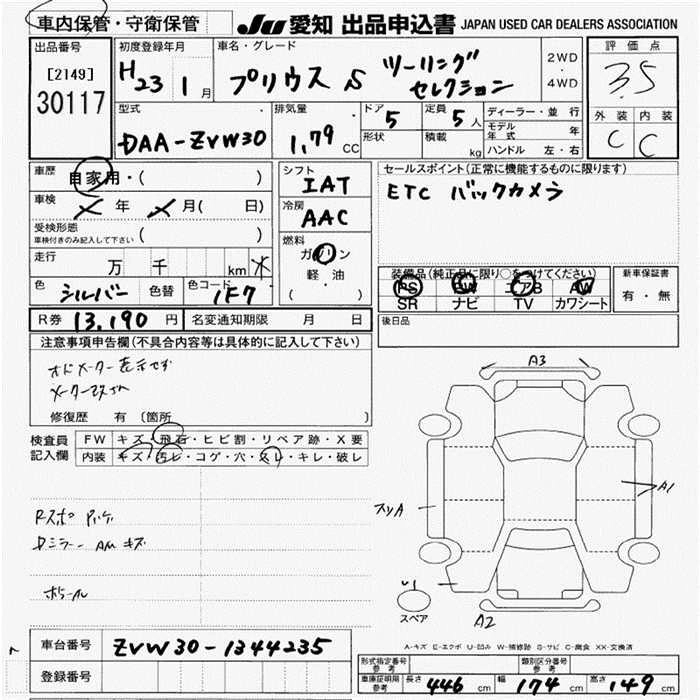 車内保管・守衛保管
JU 愛知 出品申込書 JAPAN USED CAR DEALERS ASSOCIATION
出品番号
[2149]
30117
初度登録年月
H23 1月
車名・グレード
プリウス S ツーリング
セレクション
2WD
・
4WD
評価点
3.5
外装 内装
C C
型式
DAA-ZVW30
排気量
1.79 CC
ドア 5
形状
定員 5人
積載 kg
ディーラー・並行
モデル年式 年
ハンドル 左・右
車歴 自家用・( )
車検 年 月( 日)
受検形態
車検付きのみ記入して下さい ( )
走行 万 千 km
色 シルバー 色替 色コード 1F7
シフト
IAT
冷房
AAC
燃料
ガソリン
軽油
( ・ )
セールスポイント(正常に機能するものに限ります)
ETC バックカメラ
装備品(純正品に限り○をつけてください)
PS PW エアB AW
SR ナビ TV カワシート
新車保証書
有・無
R券 13,190 円 名変通知期限 月 日
後日品
注意事項申告欄(不具合内容等は具体的に記入して下さい)
オドメーター表示せず
修復歴 有 〔箇所 〕
検査員
記入欄
FW キズ・飛石・ヒビ割・リペア跡・X要
内装 キズ・汚レ・コゲ・穴・スレ・キレ・破レ
A3
A1
スリA
A2
スペア
Dミラー AM キズ
A-キズ E-エクボ U-凹み W-補修跡 S-サビ C-腐食 XX-交換済
車台番号 ZVW30-1344235
登録番号
形式指定番号
参考
類別区分番号
参考
車庫証明用
参考
長さ 446 cm 幅 174 cm 高さ 149 cm